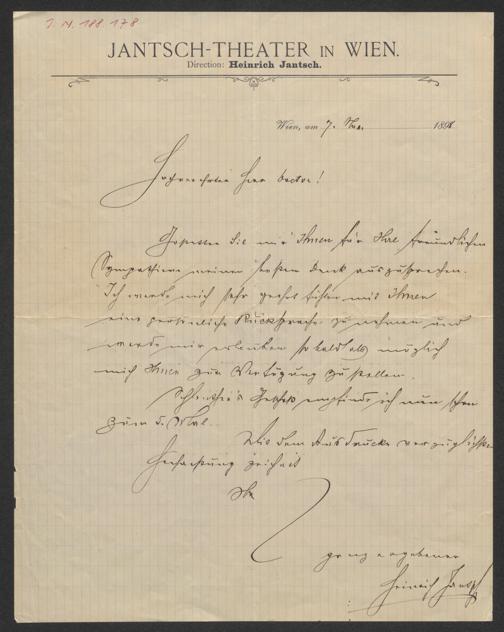 I. N. 188.178
JANTSCH-THEATER IN WIEN.
Direction: Heinrich Jantsch.
Wien, am 7. Mai 1898
Hochverehrter Herr Doctor!
Gestatten Sie mir Ihnen für Ihre freundlichen
Sympathieen meinen besten Dank auszusprechen.
Ich werde mich sehr geehrt fühlen mit Ihnen
eine persönliche Rücksprache zu nehmen und
werde mir erlauben so bald als möglich
mich Ihnen zur Verfügung zu stellen.
empfinde ich nun schon
zum 5. Mal.
Mit dem Ausdrucke vorzüglichster
Hochachtung zeichnet
Ihr
ganz ergebener
Heinrich Jantsch